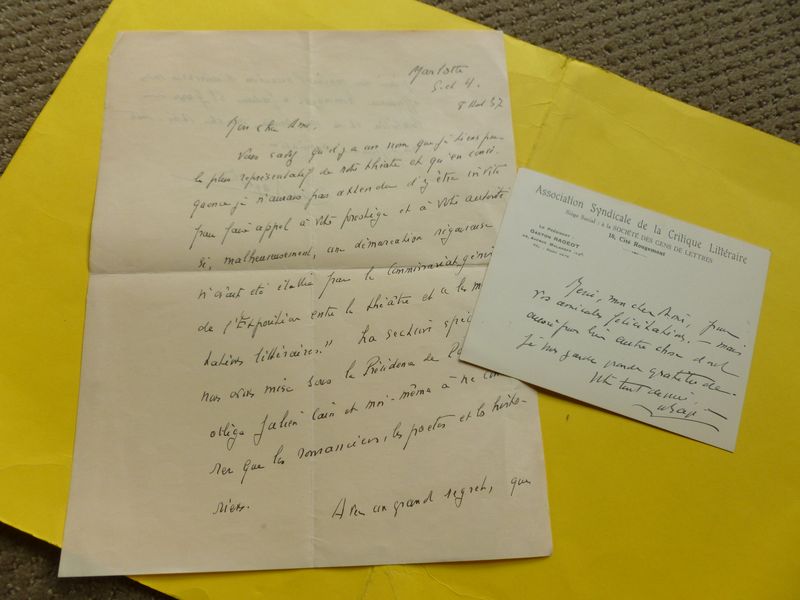 Marlotte
S. et M.
8 Mai 37
Mon cher Ami,
Vous savez qu'il y a un nom que je tiens pour
le plus représentatif de notre théâtre et qu'en consé-
quence je n'aurais pas attendu d'y être invité
pour faire appel à votre prestige et à votre autorité
si, malheureusement, une démarcation rigoureuse
n'avait été établie par le Commissariat géné
de l'Exposition entre le théâtre et "les m
tations littéraires." La section
nous avons mise sous la Présidence de P
oblige Julien Cain et moi-même à ne con
rer que les romanciers, les poètes et les histo-
riens.
A mon grand regret, que
Association Syndicale de la Critique Littéraire
Siège Social : à la SOCIÉTÉ DES GENS DE LETTRES
10, Cité Rougemont
LE PRÉSIDENT
GASTON RAGEOT
Merci, mon cher Ami, pour
vos amicales félicitations, — mais
aussi pour bien autre chose dont
je vous garde grande gratitude.
Votre tout dévoué, —